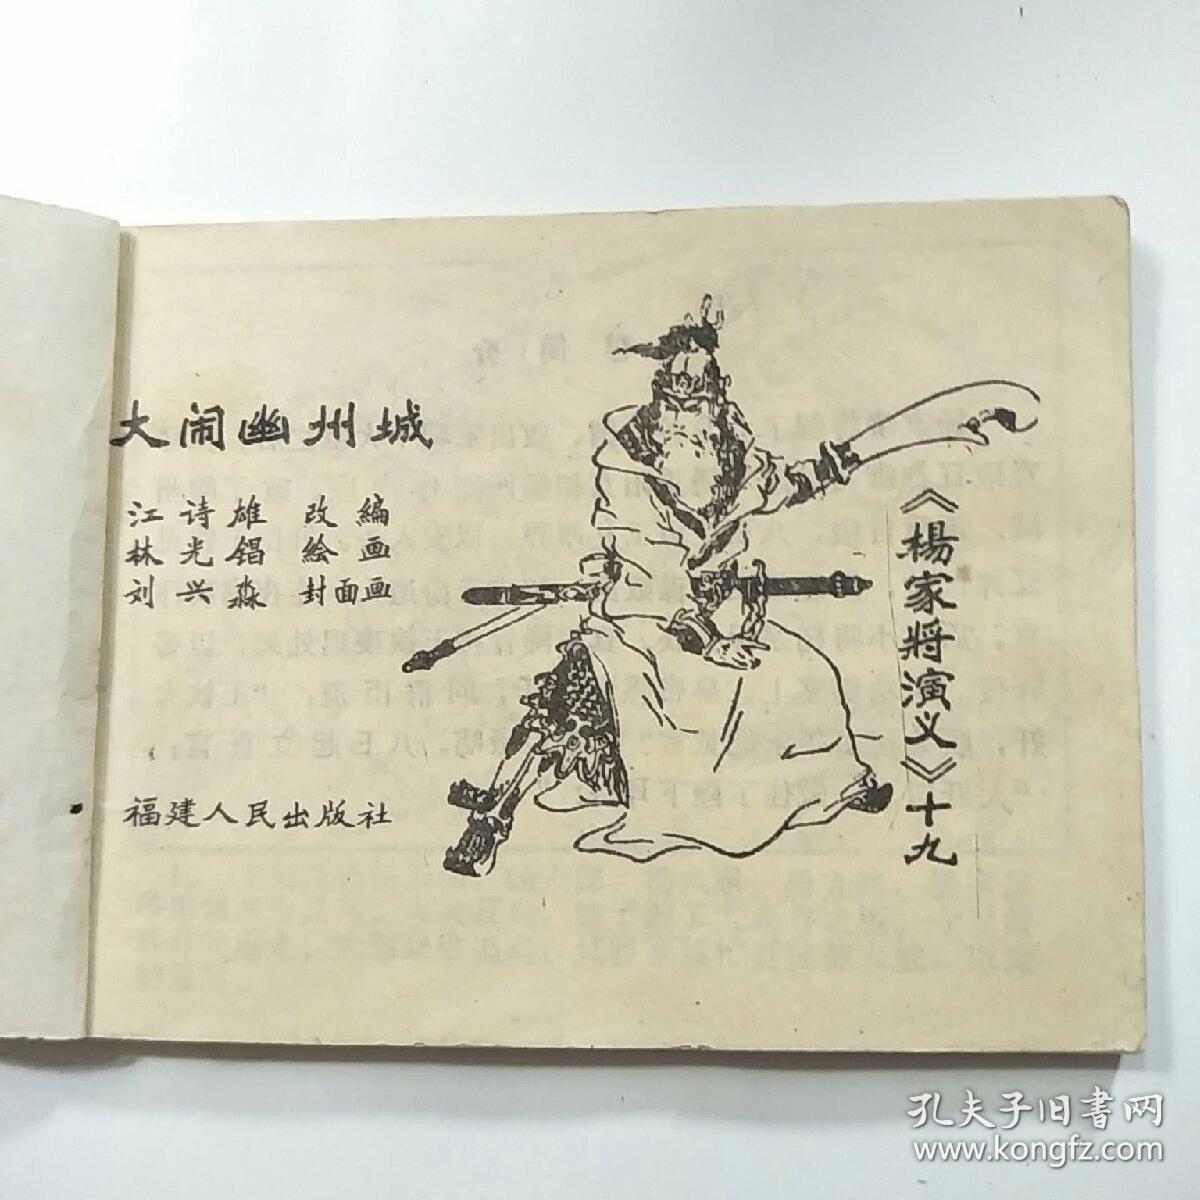 大闹幽州城
江诗雄 改编
林光锠 绘画
刘兴淼 封面画
福建人民出版社
《楊家將演义》十九
孔夫子旧書网
www.kongfz.com